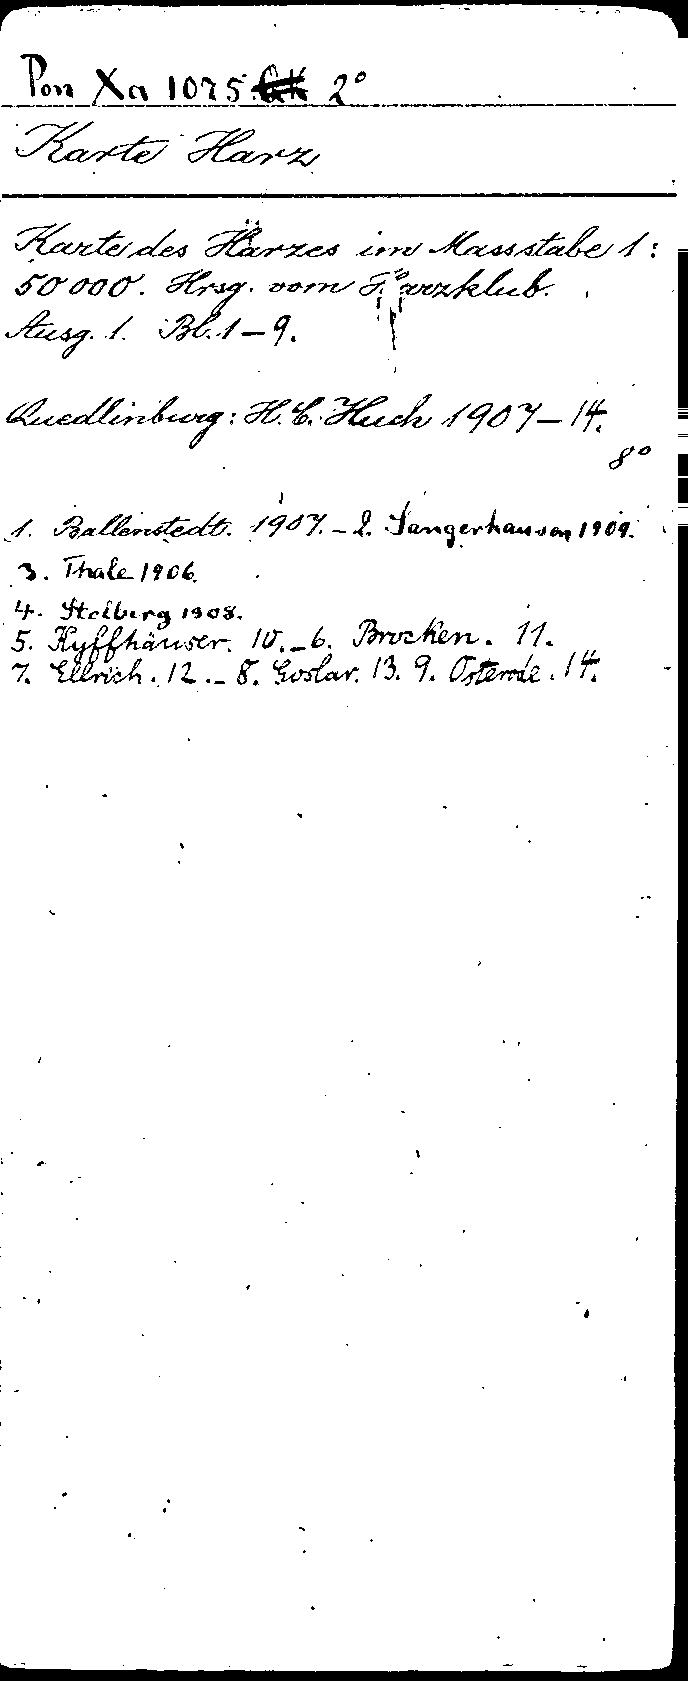 Pon Xa 1075 2°
Karte Harz
Karte des Harzes im Massstabe 1:
50000. Hrsg. vom Harzklub.
Ausg. 1. Bl. 1-9.
Quedlinburg: H. C. Huch 1907-14.
8°
1. Ballenstedt. 1907. - 2. Sangerhausen 1909.
3. Thale 1906.
4. Stolberg 1908.
5. Kyffhäuser. 10. - 6. Brocken. 11.
7. Ellrich. 12. - 8. Goslar. 13. 9. Osterode. 14.